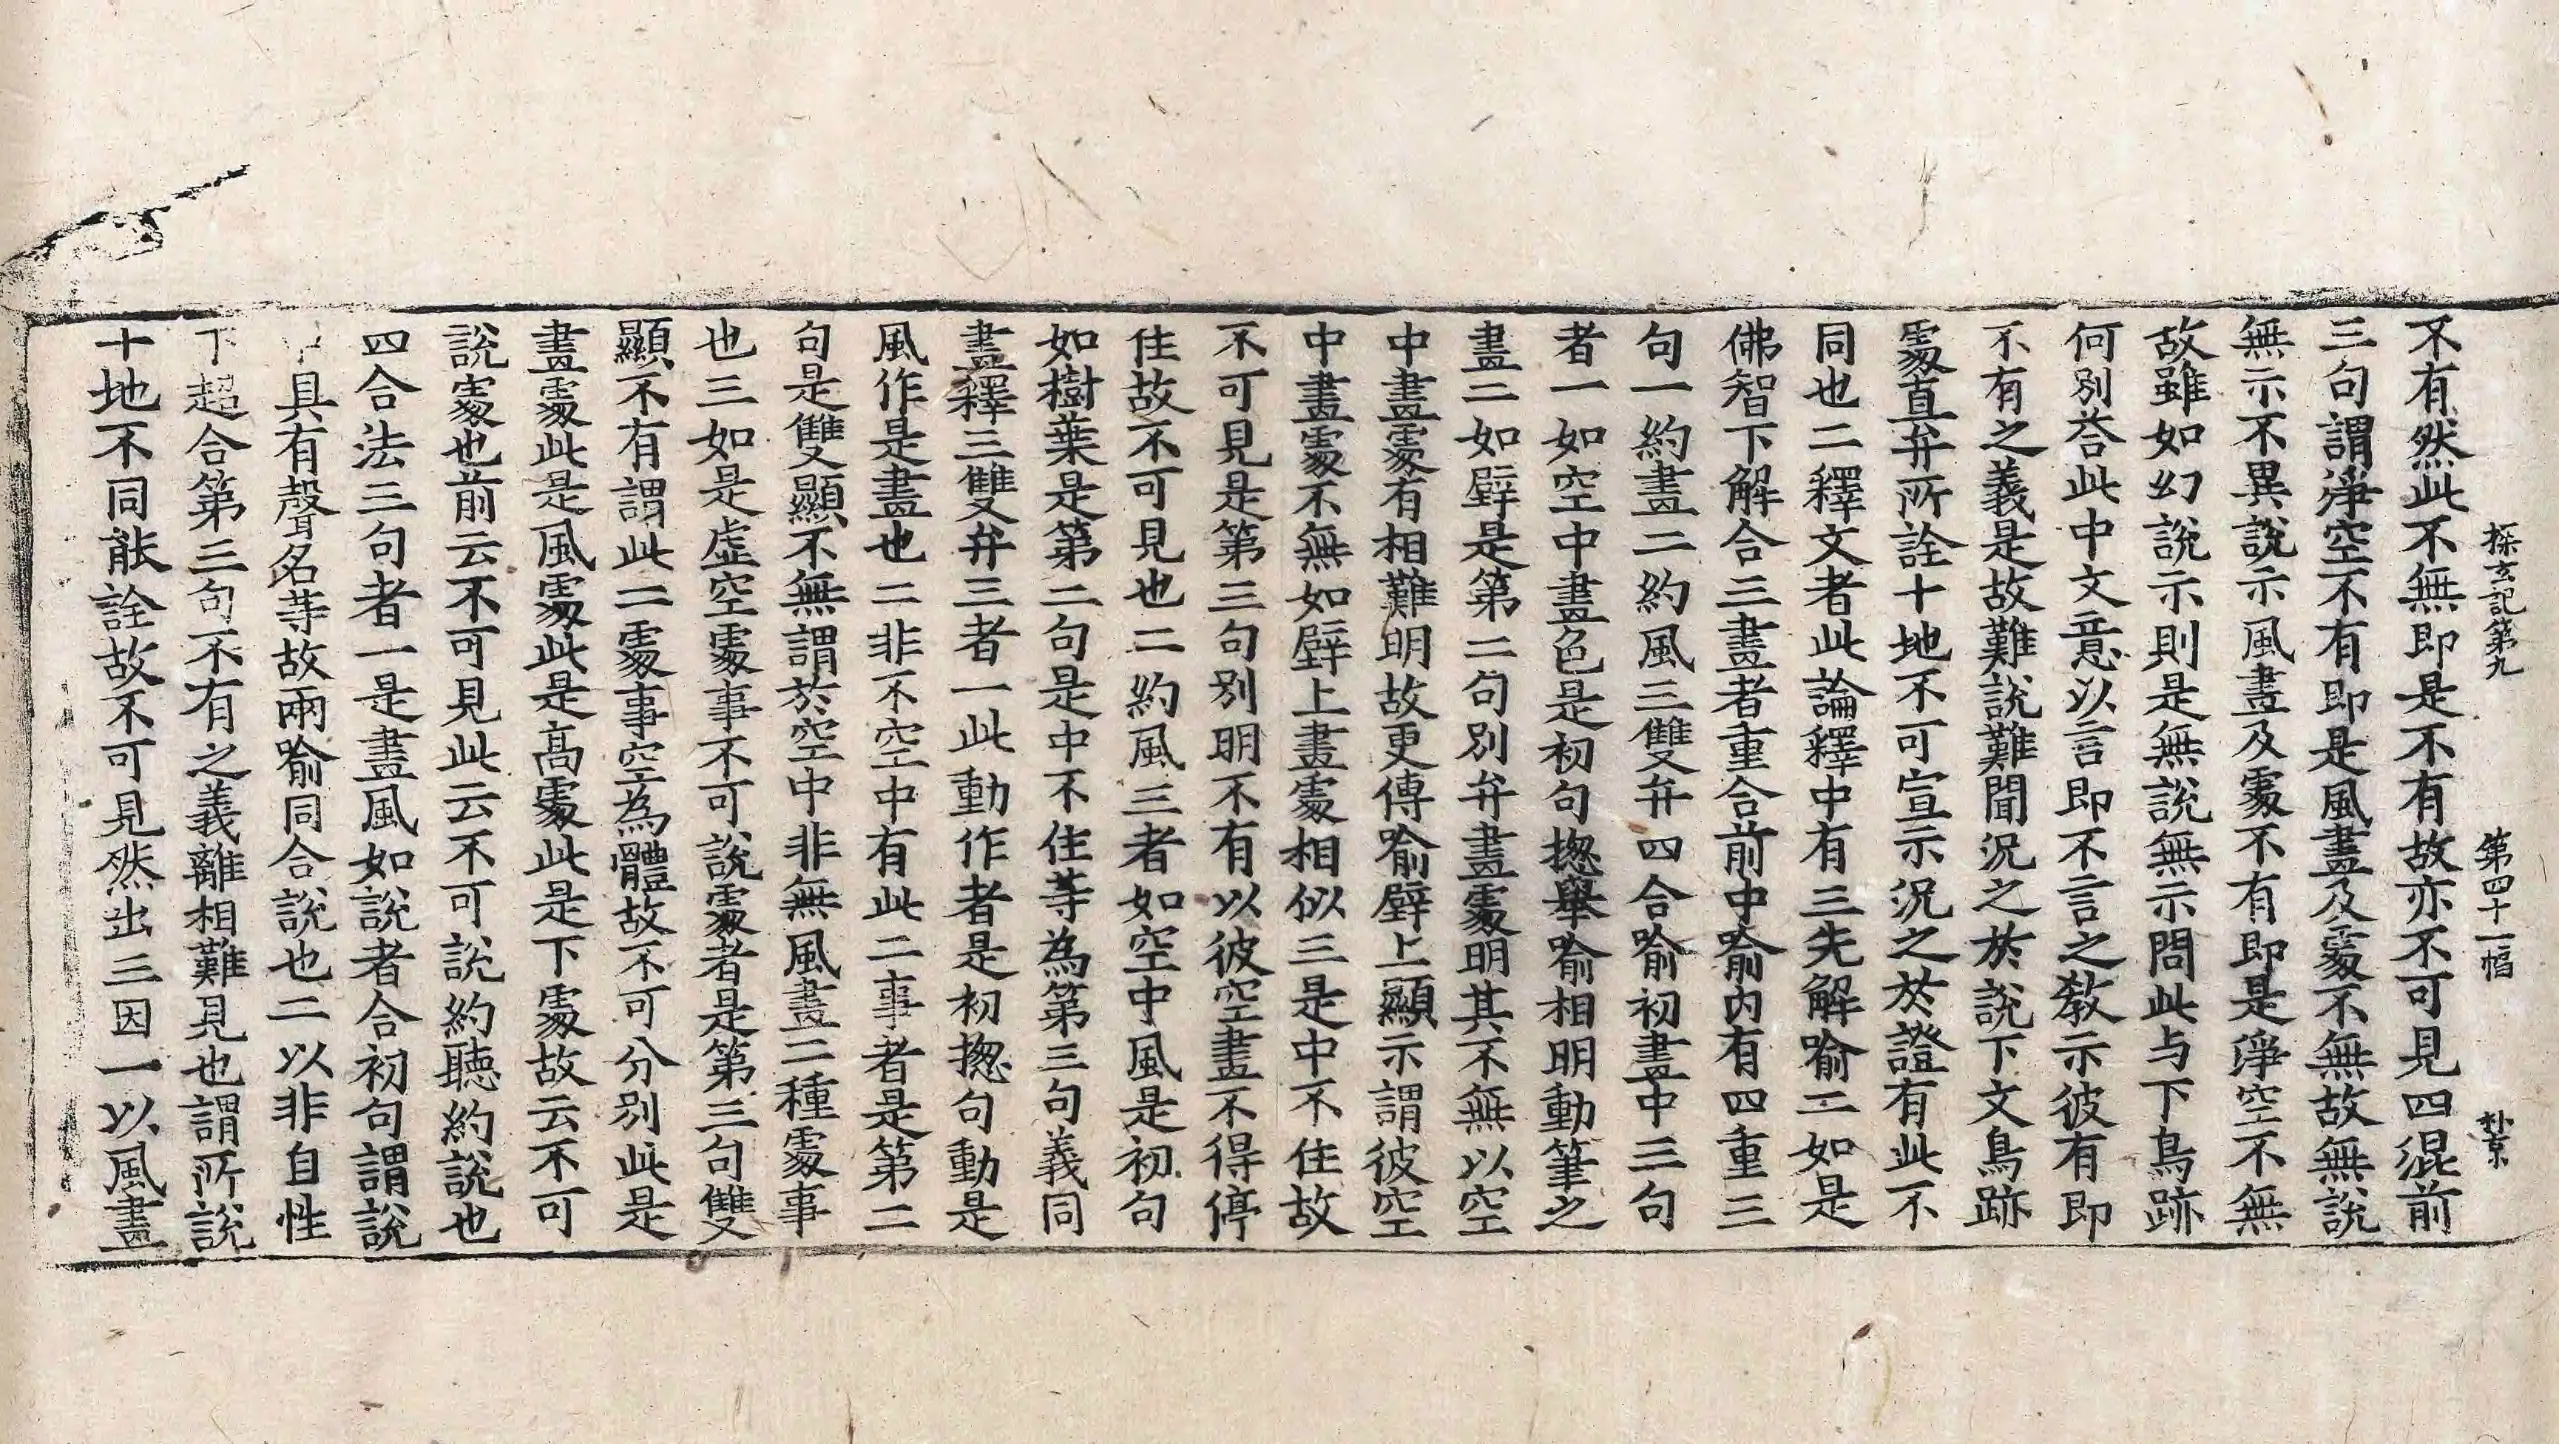 探玄記第九　第四十一幅
不有然此不無即是不有故亦不可見四混前
三句謂淨空不有即是風畫及處不無故無說
無示不異說示風畫及處不有即是淨空不無
故雖如幻說示則是無說無示問此与下鳥跡
何別荅此中文意以言即不言之教示彼有即
不有之義是故難說難聞況之於說下文鳥跡
處直弁所詮十地不可宣示況之於證有此不
同也二釋文者此論釋中有三先解喻二如是
佛智下解合三畫者重合前中喻內有四重三
句一約畫二約風三雙弁四合喻初畫中三句
者一如空中畫色是初句揔舉喻相明動筆之
畫二如壁是第二句別弁畫處明其不無以空
中畫處有相難明故更傳喻壁上顯示謂彼空
中畫處不無如壁上畫處相似三是中不住故
不可見是第三句別明不有以彼空畫不得停
住故不可見也二約風三者如空中風是初句
如樹葉是第二句是中不住等為第三句義同
畫釋三雙弁三者一此動作者是初揔句動是
風作是畫也二非不空中有此二事者是第二
句是雙顯不無謂於空中非無風畫二種處事
也三如是虛空處事不可說處者是第三句雙
顯不有謂此二處事空為體故不可分別此是
畫處此是風處此是高處此是下處故云不可
說處也前云不可見此云不可說約聽約說也
四合法三句者一是畫風如說者合初句謂說
中具有聲名等故兩喻同合說也二以非自性
下超合第三句不有之義離相難見也謂所說
十地不同能詮故不可見然出三因一以風畫